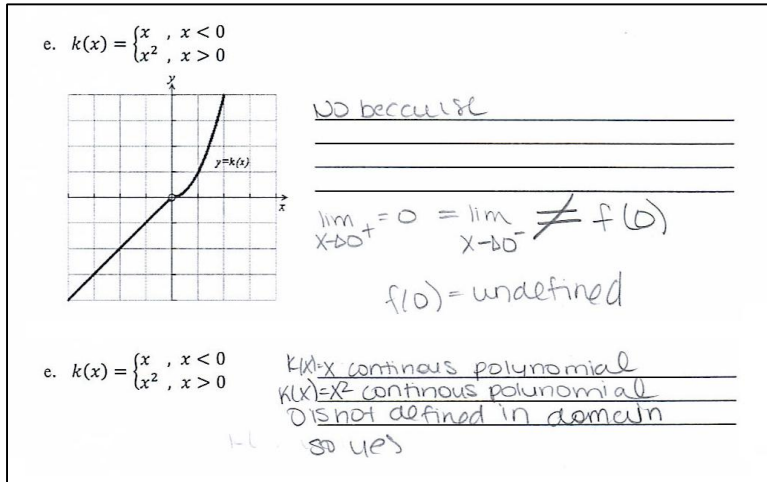 e. k(x) = {x , x < 0
x² , x > 0
y
NO because
y=k(x)
x
lim x→0⁺ = 0 = lim x→0⁻ ≠ f(0)
f(0) = undefined
e. k(x) = {x , x < 0
x² , x > 0
k(x)=x continous polynomial
k(x)=x² continous polunomial
0 is not defined in domain
so yes